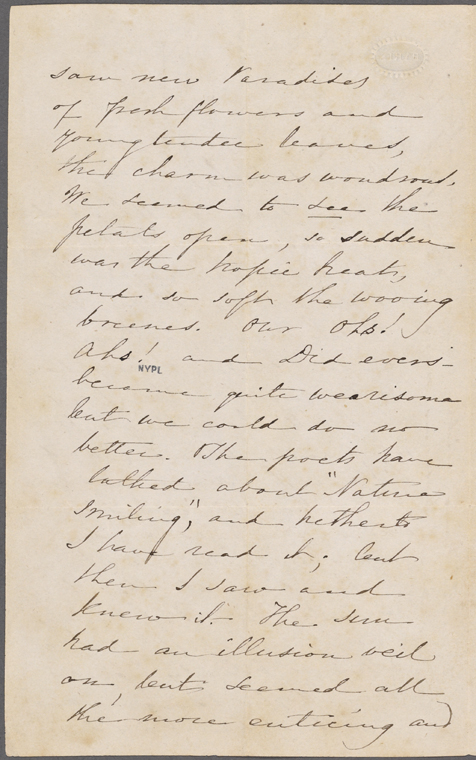 saw new Paradises
of fresh flowers and
young tender leaves,
the charm was wondrous.
We seemed to see the
petals open, so sudden
was the tropic heats,
and so soft the wooing
breezes. Our Ohs!
Ahs! and Did evers-
NYPL
became quite wearisome
but we could do no
better. The poets have
talked about "Nature
Smiling", and hitherto
I have read it; but
then I saw and
knew it. The sun
had an illusion veil
on, but seemed all
the more enticing and